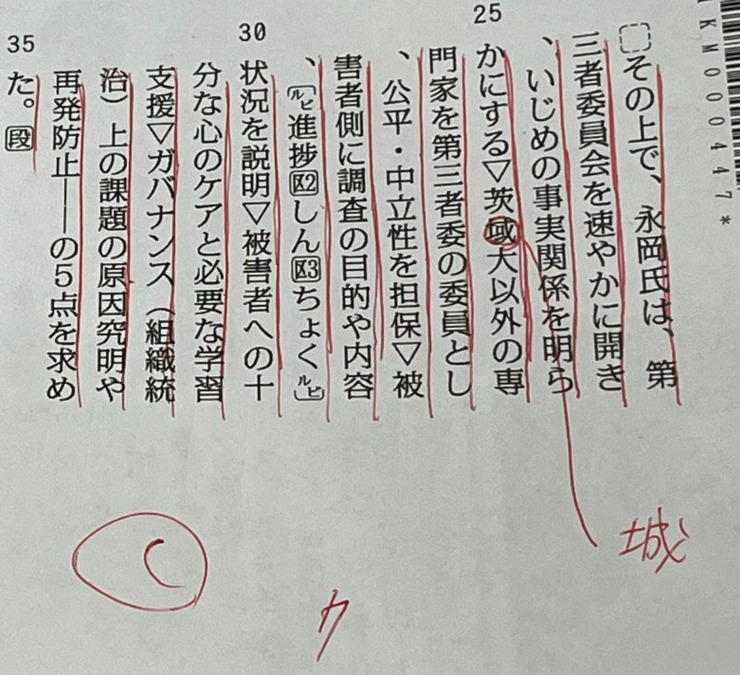 KM000447*
その上で、永岡氏は、第
三者委員会を速やかに開き
、いじめの事実関係を明ら
25
かにする▽茨域大以外の専
門家を第三者委の委員とし
、公平・中立性を担保▽被
害者側に調査の目的や内容
、〔ルビ進捗区2しん区3ちょくルビ〕
30
状況を説明▽被害者への十
分な心のケアと必要な学習
支援▽ガバナンス（組織統
治）上の課題の原因究明や
再発防止――の5点を求め
35
た。段
城